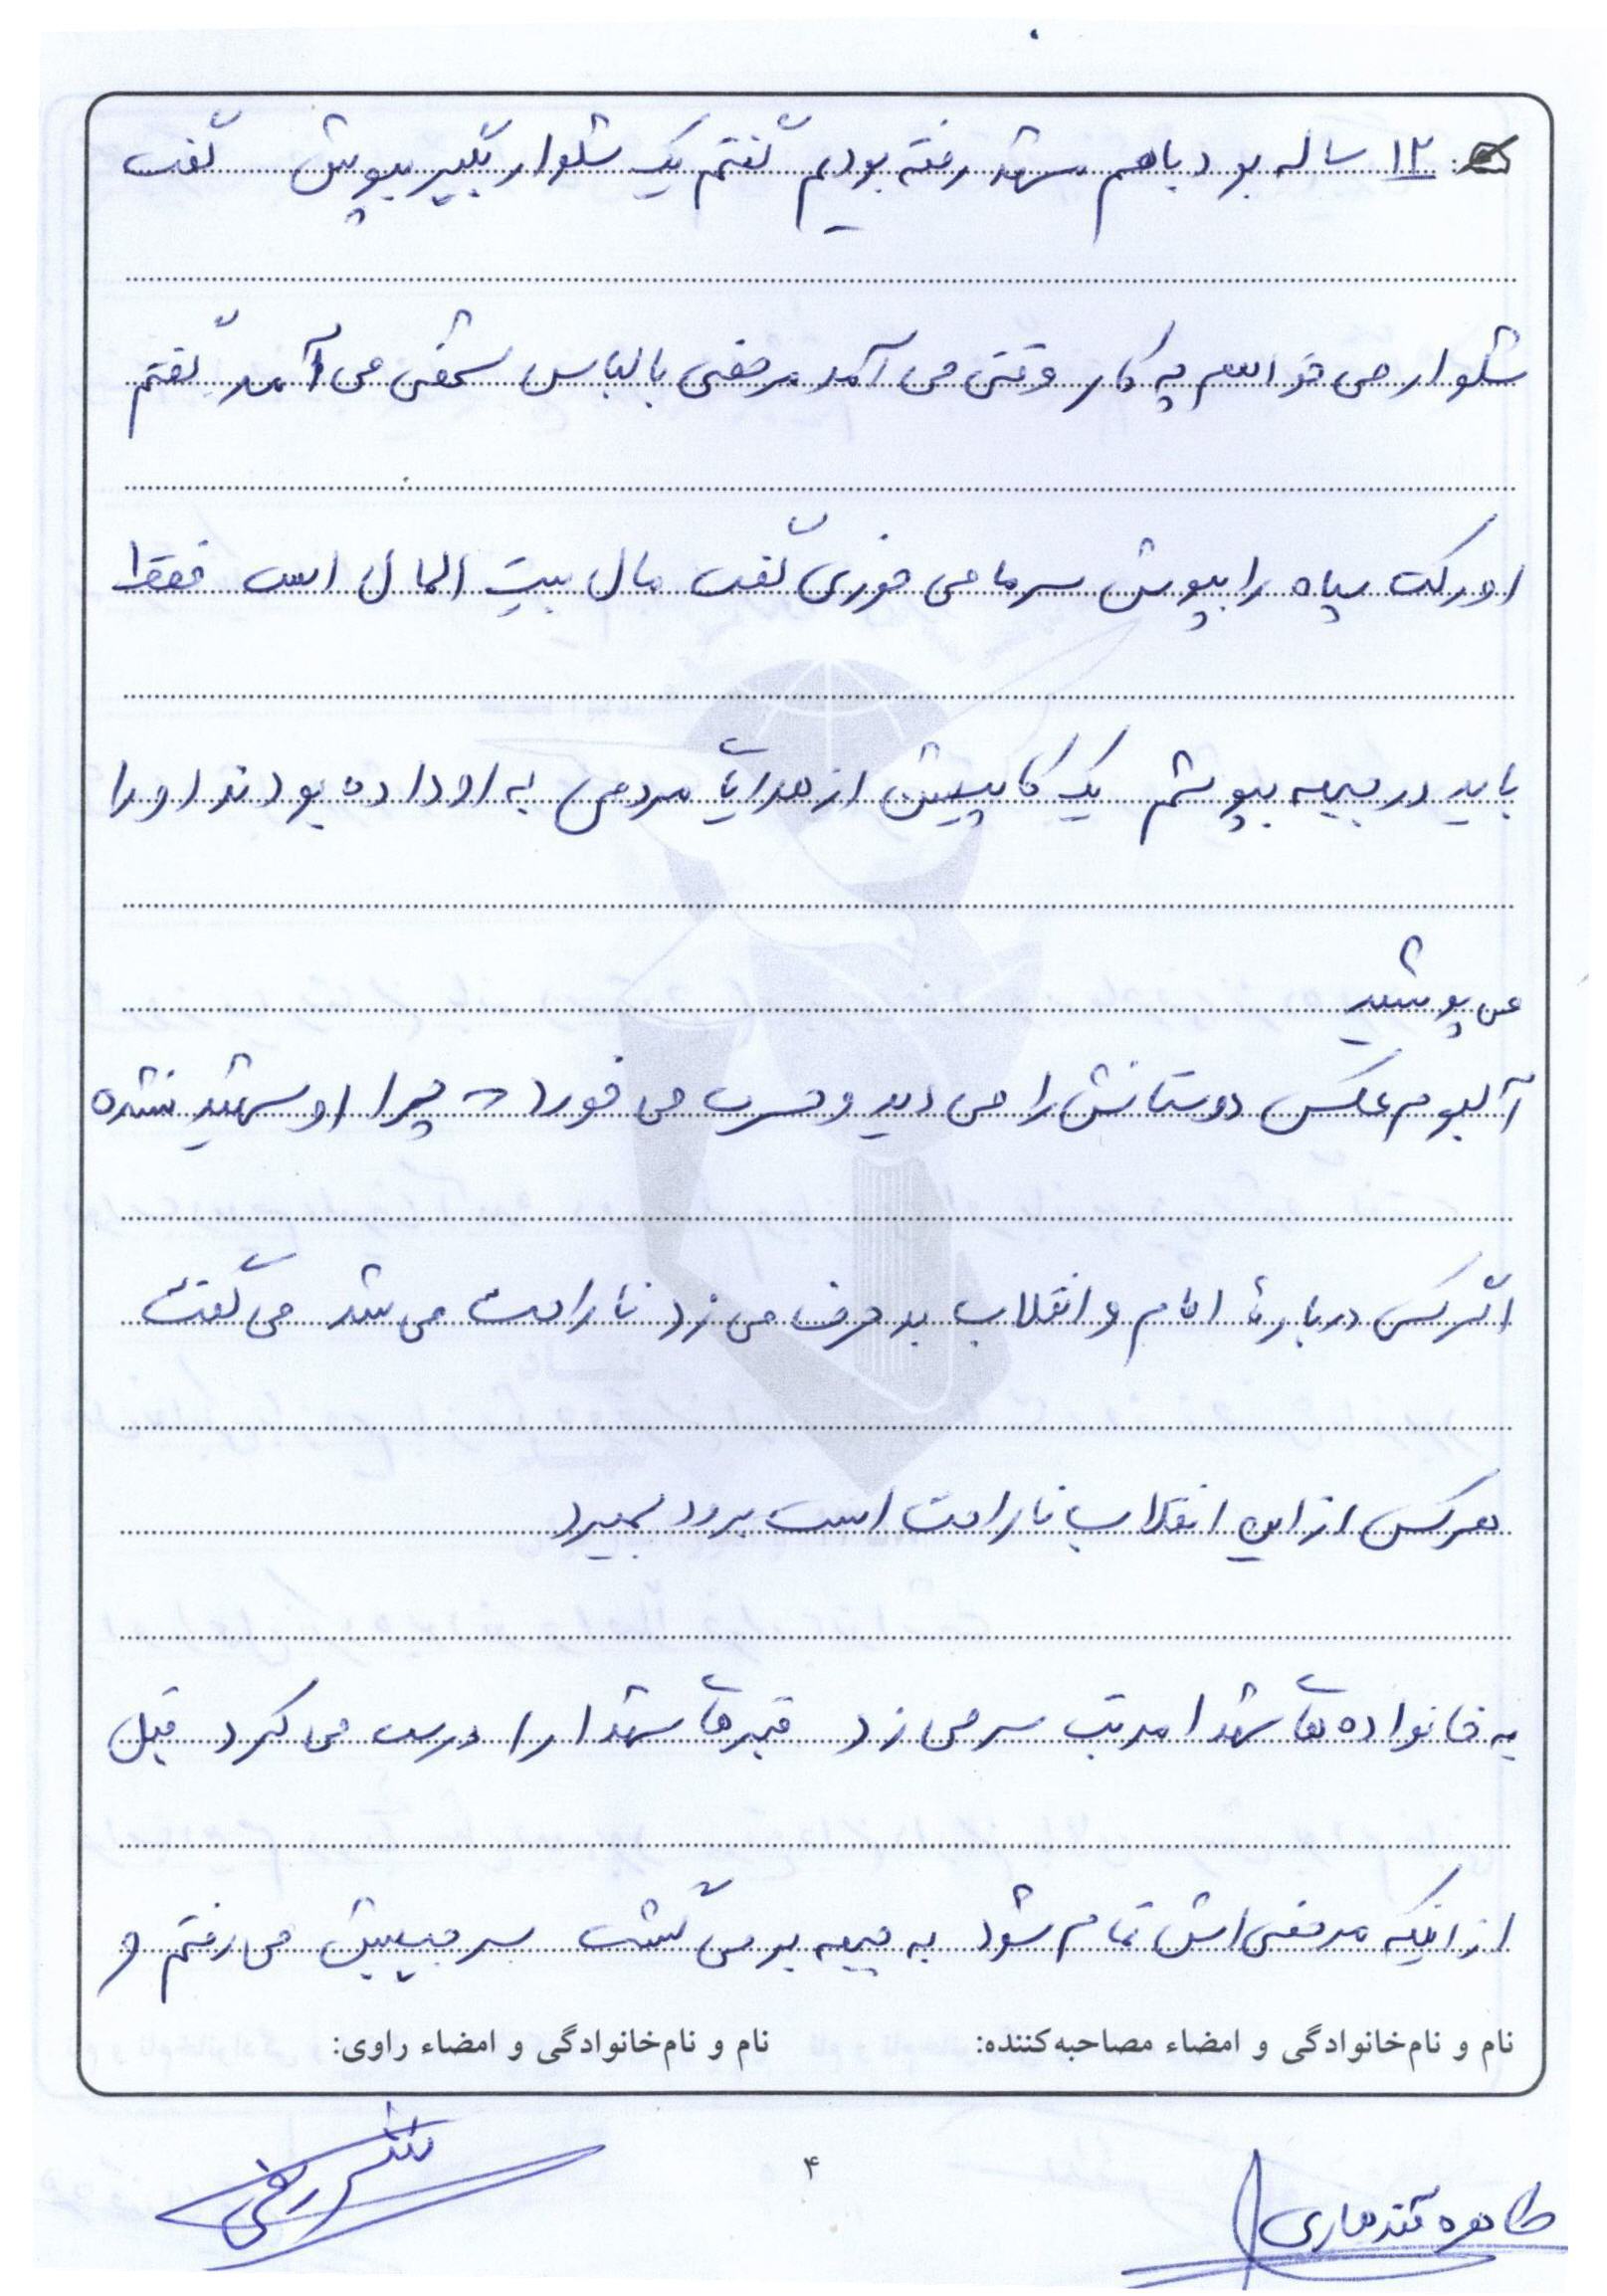 ۱۲ ساله بود باهم مشهد رفته بودیم گفتم یک شلوار بگیر بپوش گفت
شلوار می خواهم چه کار وقتی می آمد مرخصی با لباس شخصی می آمد گفتم
اورکت سپاه را بپوش سرما می خوری گفت مال بیت المال است فقط
باید در جبهه بپوشم یک کاپیشن از هدایا مردمی به او داده بودند او را
می پوشید
آلبوم عکس دوستانش را می دید و حسرت می خورد که چرا او شهید نشده
اگر کسی دربارۀ امام و انقلاب بد حرف می زد ناراحت می شد می گفت
هرکس از این انقلاب ناراحت است برود بمیرد
به خانواده های شهدا مرتب سر می زد قبرهای شهدا را درست می کرد قبل
از اینکه مرخصی اش تمام شود به جبهه برمی گشت سر جیبش می رفتم و
نام و نام‌خانوادگی و امضاء مصاحبه‌کننده: نام و نام‌خانوادگی و امضاء راوی:
طاهره قندهاری ۴ شریفی